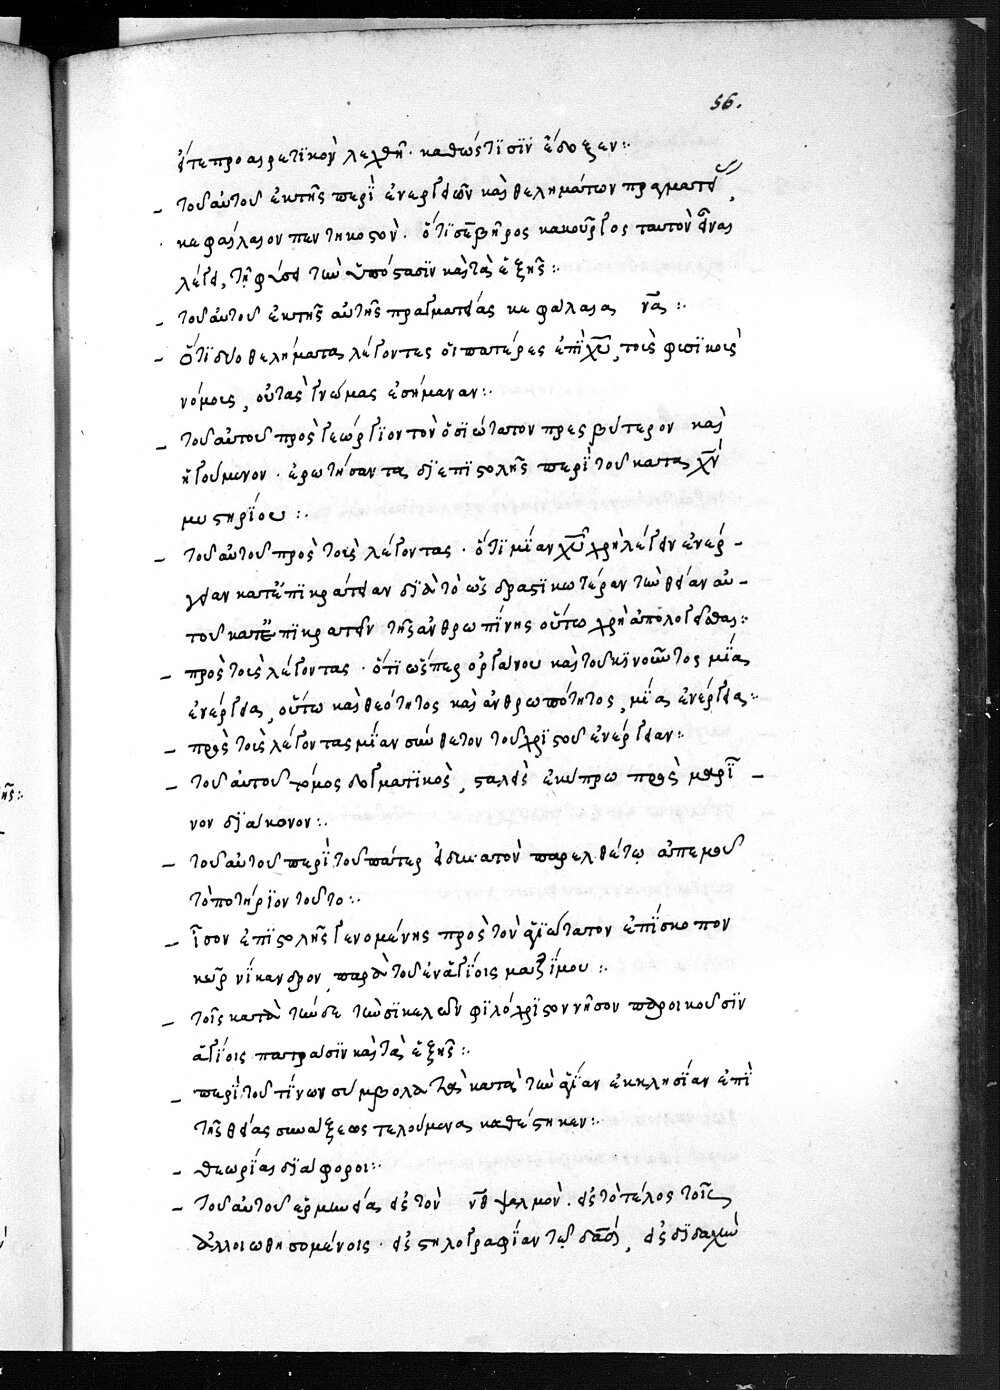 56.
εἴτε προαιρετικὸν λεχθῆ· καθὼς τισὶν ἔδοξεν:
– τοῦ αὐτοῦ ἐκ τῆς περὶ ἐνεργειῶν καὶ θελημάτων πραγματείας,
κεφάλαιον πεντηκοστὸν· ὅτι σεβῆρος κακούργως ταυτὸν εἶναι
λέγει, τῆ φύσει τὴν ὑπόστασιν καὶ τὰ ἑξῆς:
– τοῦ αὐτοῦ ἐκ τῆς αὐτῆς πραγματείας κεφάλαια να:
– ὅτι δύο θελήματα λέγοντες οἱ πατέρες ἐπὶ χυ, τοὺς φυσικοὺς
νόμους, οὐ τὰς γνώμας ἐσήμαναν:
– τοῦ αὐτοῦ πρὸς γεώργιον τὸν ὁσιώτατον πρεσβύτερον καὶ
ἡγούμενον· ἐρωτήσαντα δι' ἐπιστολῆς περὶ τοῦ κατὰ χν
μυστηρίου:
– τοῦ αὐτοῦ πρὸς τοὺς λέγοντας· ὅτι μίαν χυ χρὴ λέγειν ἐνέρ-
γειαν κατ' ἐπικράτειαν διὰ τὸ ὡς δραστικωτέραν τὴν θείαν αὐ-
τοῦ κατ' ἐπικρατεῖν τῆς ἀνθρωπίνης οὕτω χρὴ ἀπολογεῖσθαι:
– πρὸς τοὺς λέγοντας· ὅτι ὥσπερ ὀργάνου καὶ τοῦ κινοῦντος μία
ἐνέργεια, οὕτω καὶ θεότητος καὶ ἀνθρωπότητος, μία ἐνέργεια:
– πρὸς τοὺς λέγοντας μίαν σύνθετον τοῦ χριστοῦ ἐνέργειαν:
– τοῦ αὐτοῦ τόμος δογματικὸς, σταλεὶς ἐν κύπρω πρὸς μαρῖ-
νον διάκονον:
– τοῦ αὐτοῦ περὶ τοῦ πάτερ εἰ δυνατὸν παρελθέτω ἀπ' ἐμοῦ
τὸ ποτήριον τοῦτο:
– ἴσον ἐπιστολῆς γενομένης πρὸς τὸν ἁγιώτατον ἐπίσκοπον
κῦρ νίκανδρον, παρὰ τοῦ ἐν ἁγίοις μαξίμου:
– τοῖς κατὰ τήνδε τὴν σικελῶν φιλόχριστον νῆσον παροικοῦσιν
ἁγίοις πατράσιν καὶ τὰ ἑξῆς:
– περὶ τοῦ τίνων σύμβολα τὰ κατὰ τὴν ἁγίαν ἐκκλησίαν ἐπὶ
τῆς θείας συνάξεως τελούμενα καθέστηκεν:
– θεωρίαι διάφοροι:
– τοῦ αὐτοῦ ἑρμηνεία εἰς τὸν νθ ψαλμὸν· εἰς τὸ τέλος τοῖς
ἀλλοιωθησομένοις· εἰς στηλογραφίαν τῷ δαδ, εἰς διδαχὴν